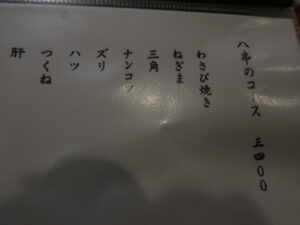 八串のコース 三四〇〇
わさび焼き
ねぎま
三角
ナンコツ
ズリ
ハツ
つくね
肝